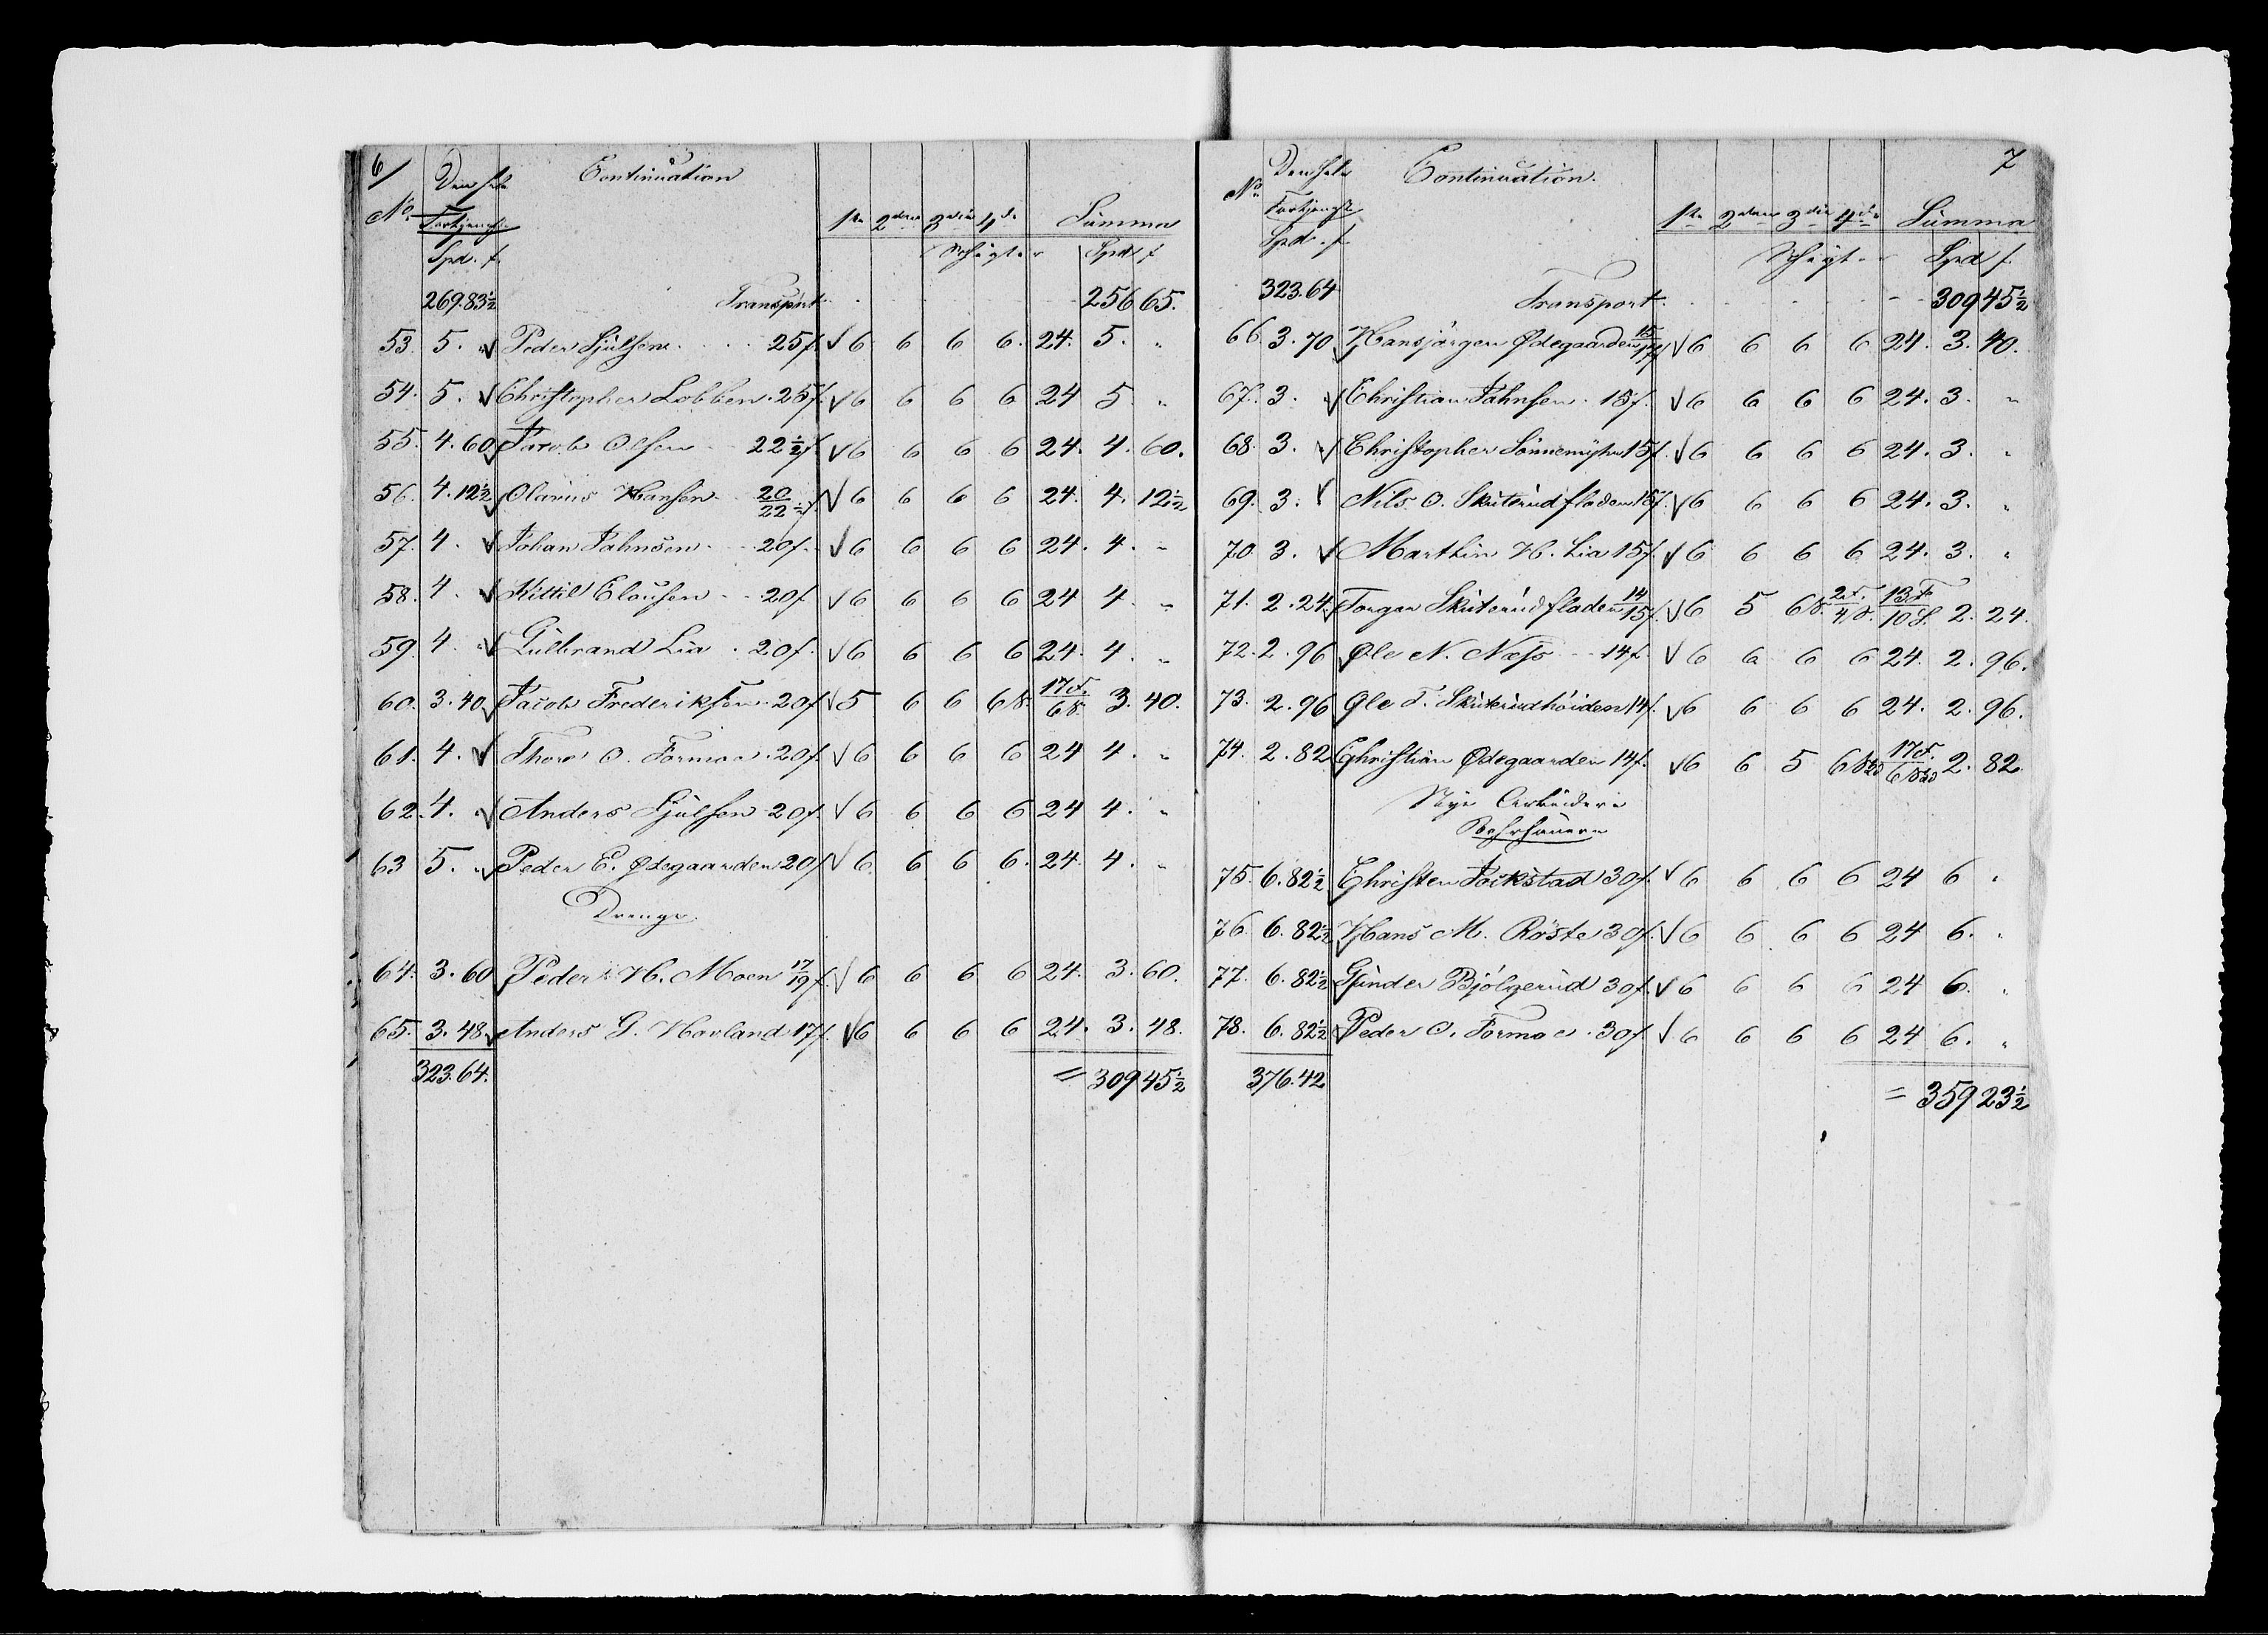 6/
Continuation
Den hele
No. Fortjeneste 1te 2den 3die 4de Summa
Spd. f. Schigter Spd f
269.83½ Transport 256 65.
53. 5. " Peder Hjulsen 25f. 6 6 6 6. 24. 5. "
54. 5. Christopher Lobben. 25f. 6 6 6 6 24 5. "
55. 4.60 Jacob Olsen 22½f. 6 6 6 6 24. 4. 60.
56. 4.12½ Olaus Hansen 20/22½f. 6 6 6 6 24. 4. 12½
57. 4. Johan Jahnsen 20f. 6 6 6 6 24. 4. "
58. 4. Kittil Clausen 20f 6 6 6 6 24 4. "
59. 4. " Gulbrand Lia . 20f. 6 6 6 6 24. 4. "
60. 3.40 Jacob Frederiksen. 20f 5 6 6 6S. 17F./6S. 3. 40.
61. 4. Thore O. Formoe. 20f. 6 6 6 6 24 4. "
62. 4. " Anders Hjulsen 20f. 6 6 6 6 24 4. "
63 5. " Peder E. Ødegaarden 20f 6. 6 6 6. 24. 4. "
Drenge.
64. 3.60 Peder H. Moen 17/19f. 6 6 6 6 24. 3. 60.
65. 3.48. Anders G. Hovland 17f. 6 6 6 6 24. 3. 48.
323.64. = 309 45½
7
Continuation.
Den hele
No. Fortjeneste 1te 2den 3die 4de Summa
Spd. f. Schigter Spd f.
323.64 Transport. 309 45½
66. 3.70 Hansjörgen Ødegaarden 15/17f 6 6 6 6 24. 3. 40.
67. 3. Christian Jahnsen. 15f. 6 6 6 6 24. 3. "
68. 3. Christopher 15f. 6 6 6 6 24. 3. "
69. 3. Nils O. Skuterudfladen 15f. 6 6 6 6 24. 3. "
70. 3. Marthin H. Lia 15f. 6 6 6 6 24. 3. "
71. 2.24. Torger Skuterudfladen 14/15f. 6 5 6S. 2F./4S. 13F/10S. 2. 24.
72. 2.96 Ole N. Næss 14f. 6 6 6 6 24. 2. 96.
73. 2.96 Ole T. Skuterudhöiden 14f. 6 6 6 6 24. 2. 96.
74. 2.82 Christian Ødegaarden 14f. 6 6 5 17F. 2. 82
Nye Arbeidere
Bohrhauere
75. 6.82½ Christen Joikstad 30f. 6 6 6 6 24 6 "
76. 6.82½ Hans M. Röste 30f. 6 6 6 6 24 6. "
77. 6.82½ Gunder Bjölgerud 30f. 6 6 6 6 24 6. "
78. 6.82½ Peder O. Formoe. 30f. 6 6 6 6 24 6. "
376.42 = 359 23½